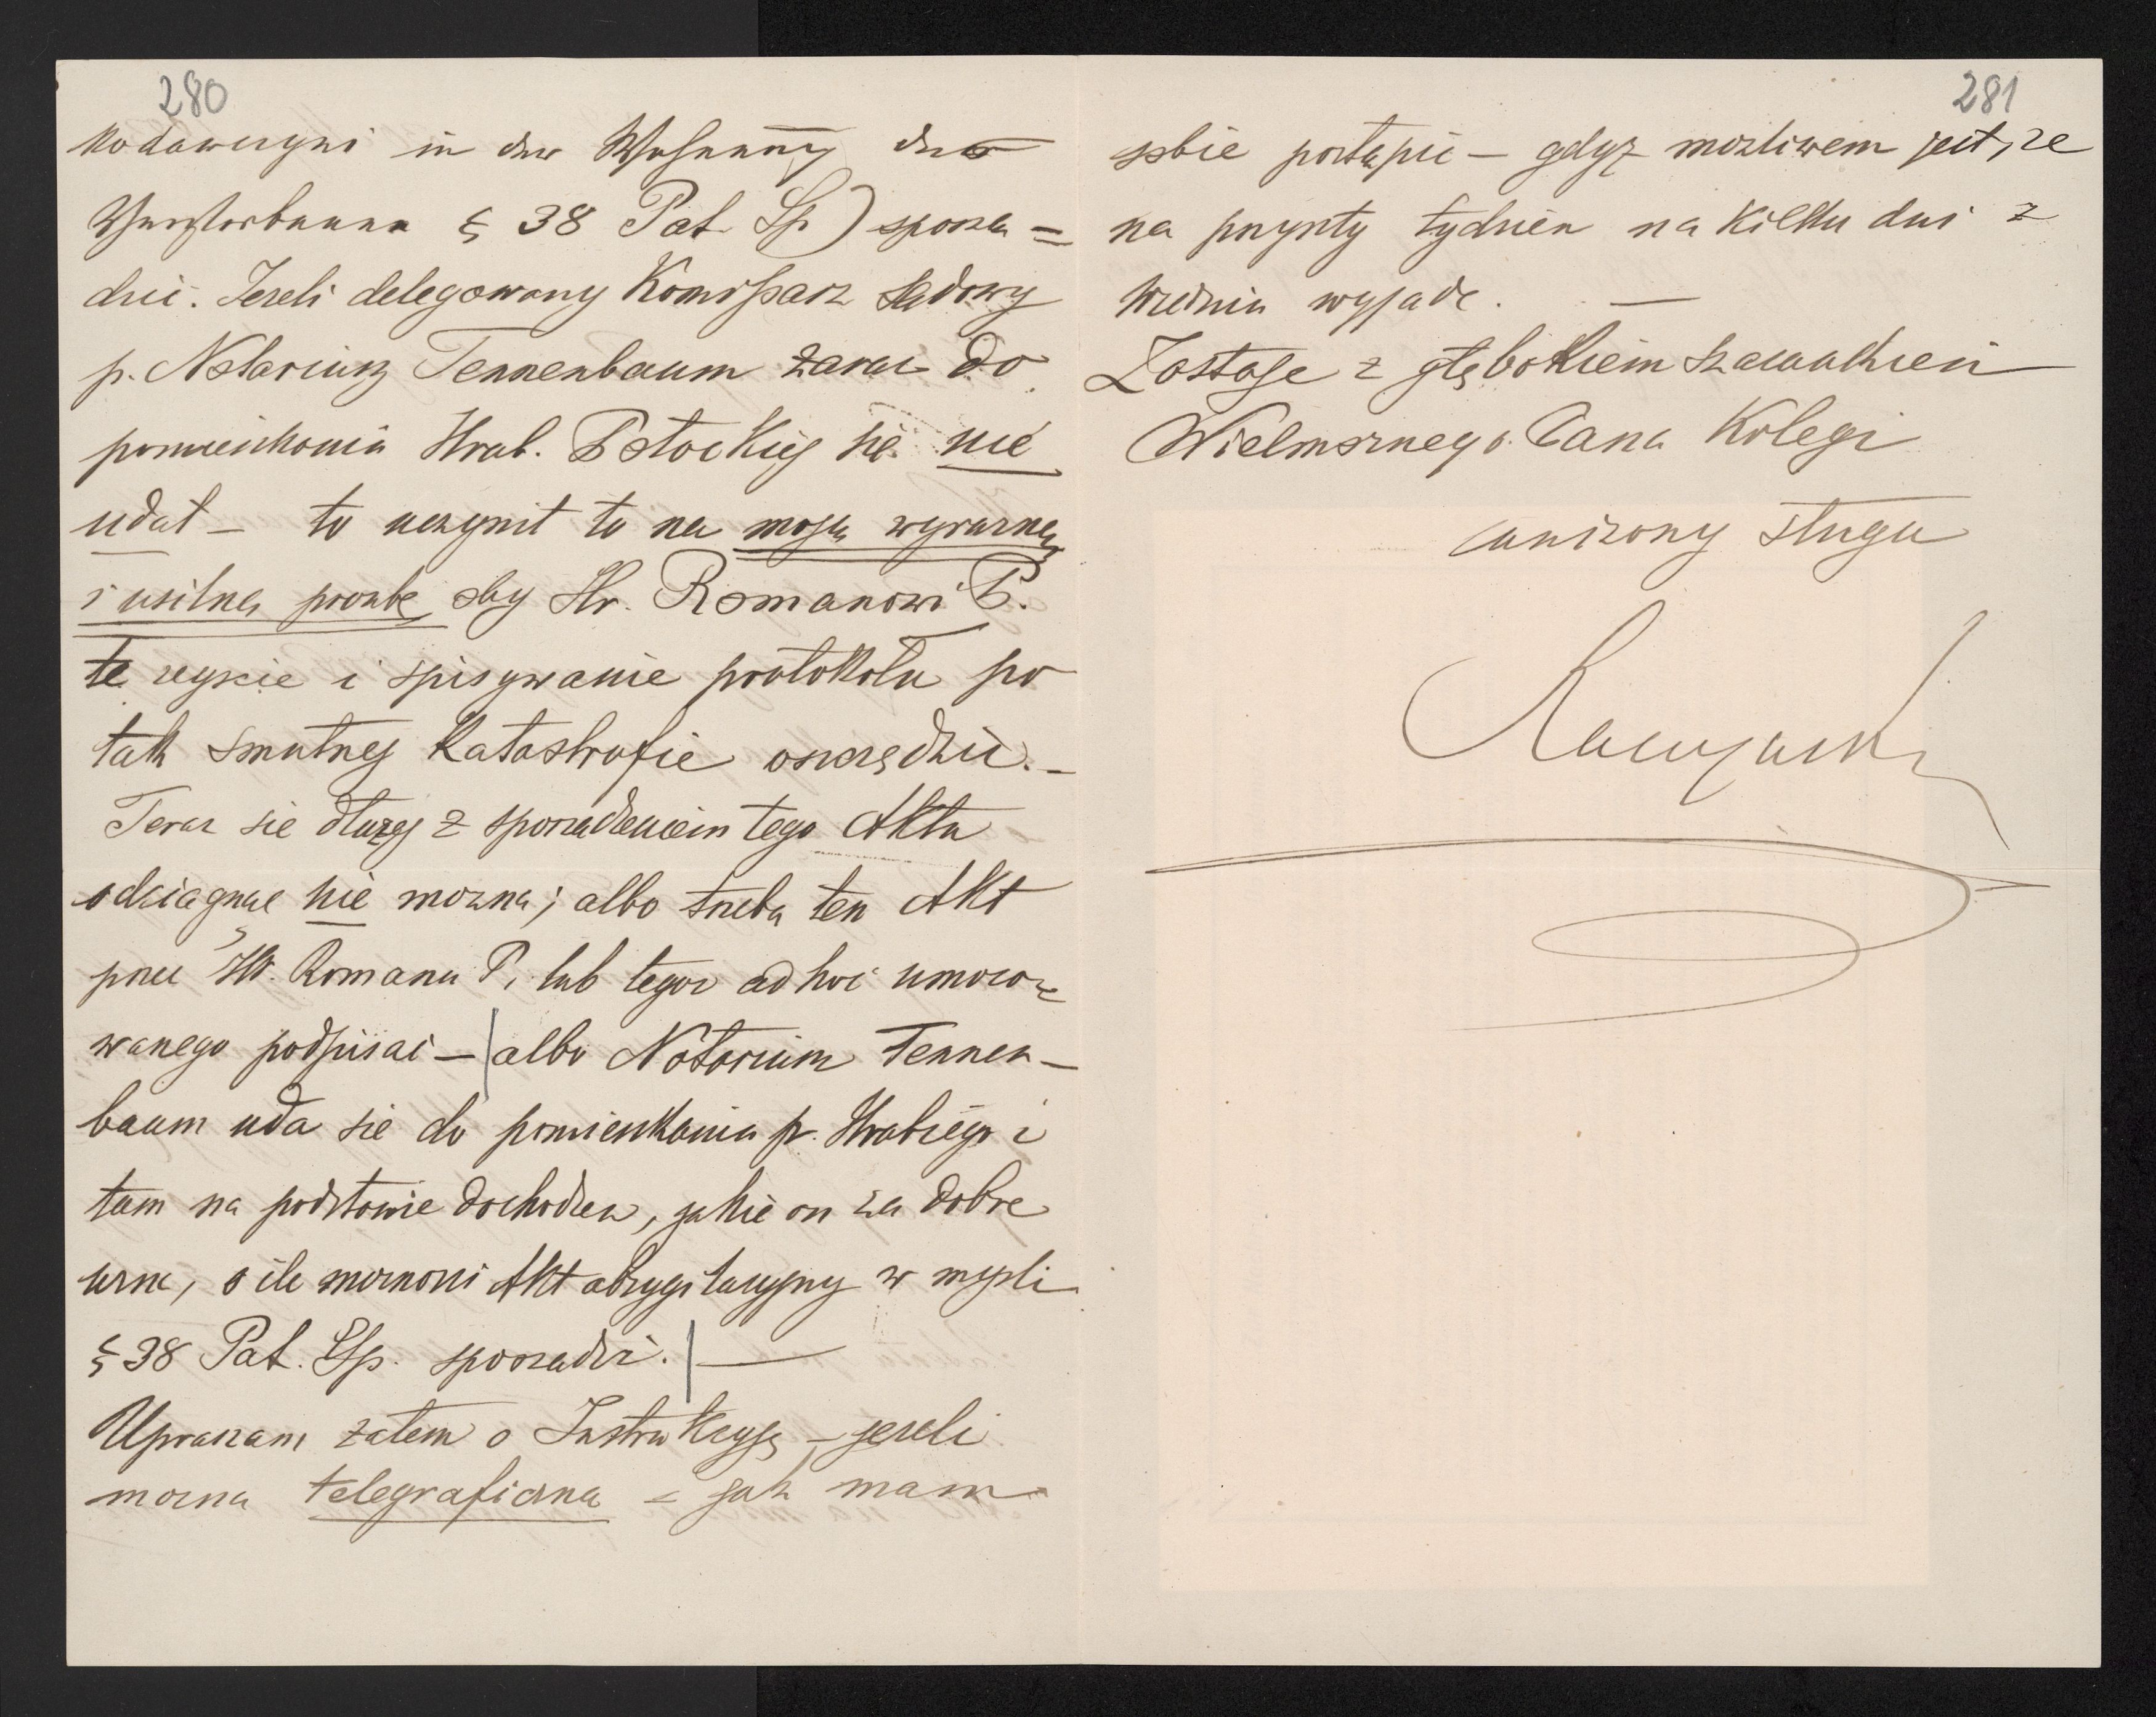 280
kodawczyni in der Wohnung des
Verstorbenen § 38 Pat. Sp) sporzą=
dzić. Jeżeli delegowany Komisarz sądowy
p. Notariusz Tennenbaum zaraz do
pomieszkania Hrab. Potockiej się nie
udał – to uczynił to na moją wyraźną
i usilną prośbę, aby Hr. Romanowi P.
te zejście i spisywanie protokołu po
tak smutnej Katastrofie oszczędzić. –
Teraz się dłużej z sporządzeniem tego Aktu
odciągnąć nie można; albo trzeba ten Akt
przez Hr. Romana P. lub tegoż ad hoc umoco=
wanego podpisać – albo Notariusz Tennen–
baum uda się do pomieszkania p. Hrabiego i
tam na podstawie dochodzeń, jakie on za dobre
uzna, o ile możności Akt obsygilacyjny w myśli
§ 38 Pat. Sp. sporządzi. —
Upraszam zatem o Instrukcyję – jeżeli
można telegraficzną – jak mam
281
sobie postąpić – gdyż możliwem jest, że
na przyszły tydzień na kilku dni z
Wiednia wyjadę. —
Zostaję z głębokiem szacunkiem
Wielmożnego Pana Kolegi
uniżony sługa